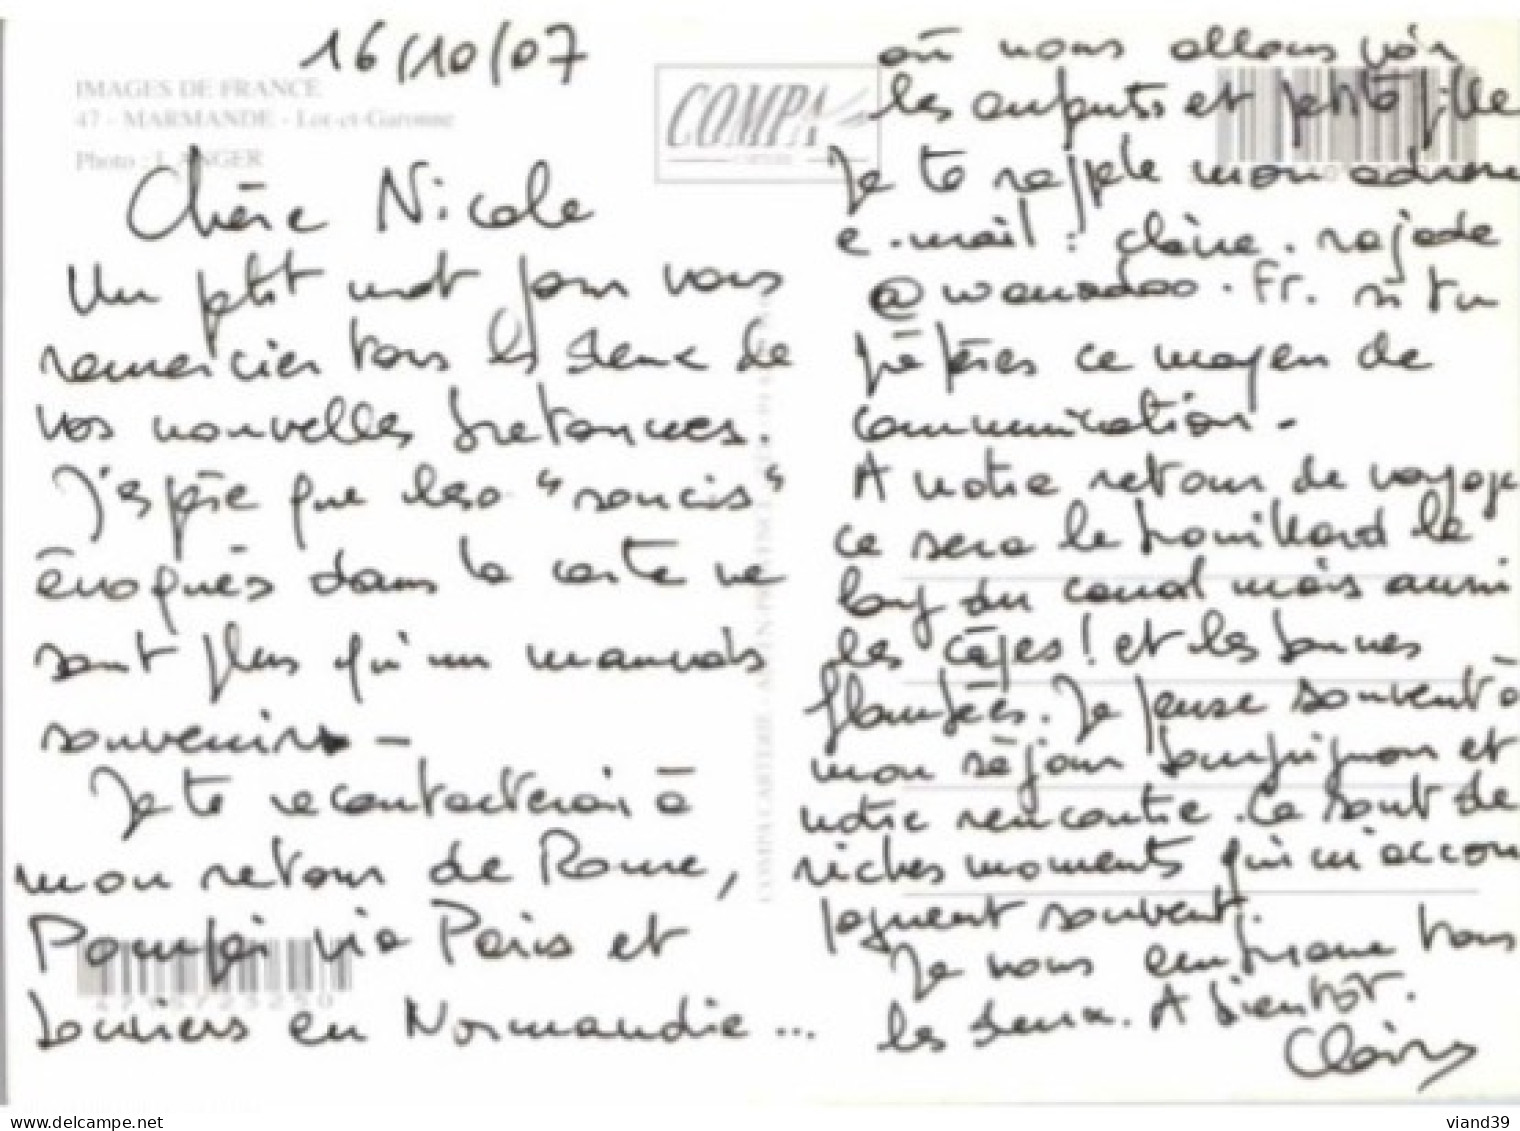 16/10/07
IMAGES DE FRANCE
47 - MARMANDE - Lot-et-Garonne
Photo : ANGER
COMPA
CARTERIE
Chère Nicole
Un ptit mot pour vous
remercier tous les deux de
vos nouvelles bretonnes.
J'espère que les "soucis"
évoqués dans la carte ne
sont plus qu'un mauvais
souvenir -
Je te recontacterai à
mon retour de Rome,
Pompéi via Paris et
Louviers en Normandie ...
où nous allons voir
les enfants et petite fille
Je te rappele mon adresse
e.mail : claire.rajade
@wanadoo.Fr. si tu
préfères ce moyen de
communication -
A notre retour de voyage
ce sera le brouillard le
long du canal mais aussi
les cèpes! et les bonnes
flambées. Je pense souvent à
mon séjour bourguignon et
notre rencontre. Ce sont de
riches moments qui m'accom
pagnent souvent.
Je vous embrasse tous
les deux. A bientôt.
Claire
COMPA CARTERIE
4795725250
viand39